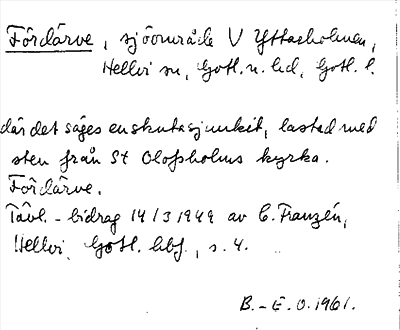 Fördärve, sjöområde V Ytterholmen,
Hellvi sn, Gotl. n. hd, Gotl. l.
där det säges en skuta sjunkit, lastad med
sten från St Olofsholms kyrka.
Fördärve.
Tävl.-bidrag 14/3 1949 av C. Franzén,
Hellvi, Gotl. hbf., s. 4.
B.-E. O. 1961.